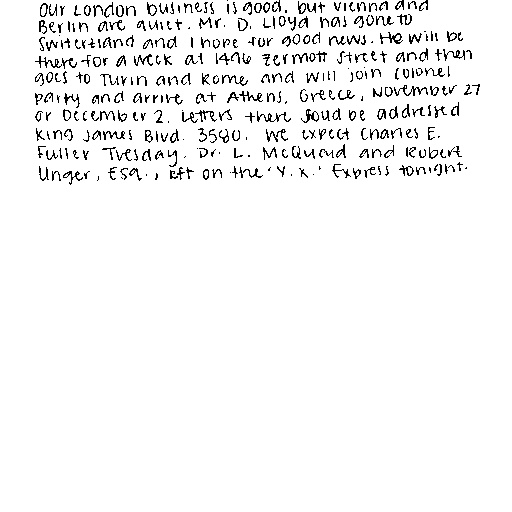 Our London business is good, but Vienna and
Berlin are quiet. Mr. D. Lloyd has gone to
Switertland and I hope for good news. He will be
there for a week at 1496 Zermott Street and then
goes to Turin and Rome and will join Colonel
party and arrive at Athens, Greece, November 27
or December 2. Letters there soud be addressed
King James Blvd. 3580. We expect Charles E.
Fuller Tuesday. Dr. L. McQuaid and Robert
Unger, Esq., left on the 'Y.X.' Express tonight.